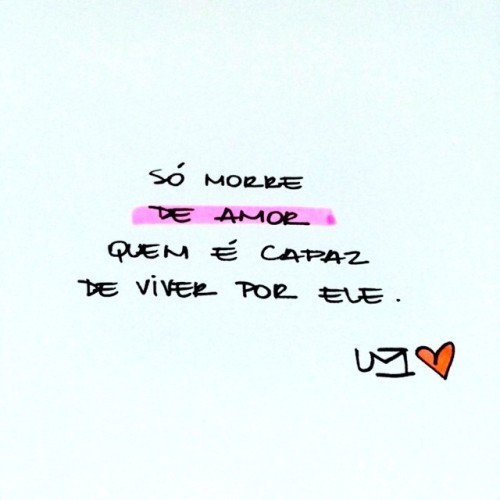 SÓ MORRE
DE AMOR
QUEM É CAPAZ
DE VIVER POR ELE.
UM